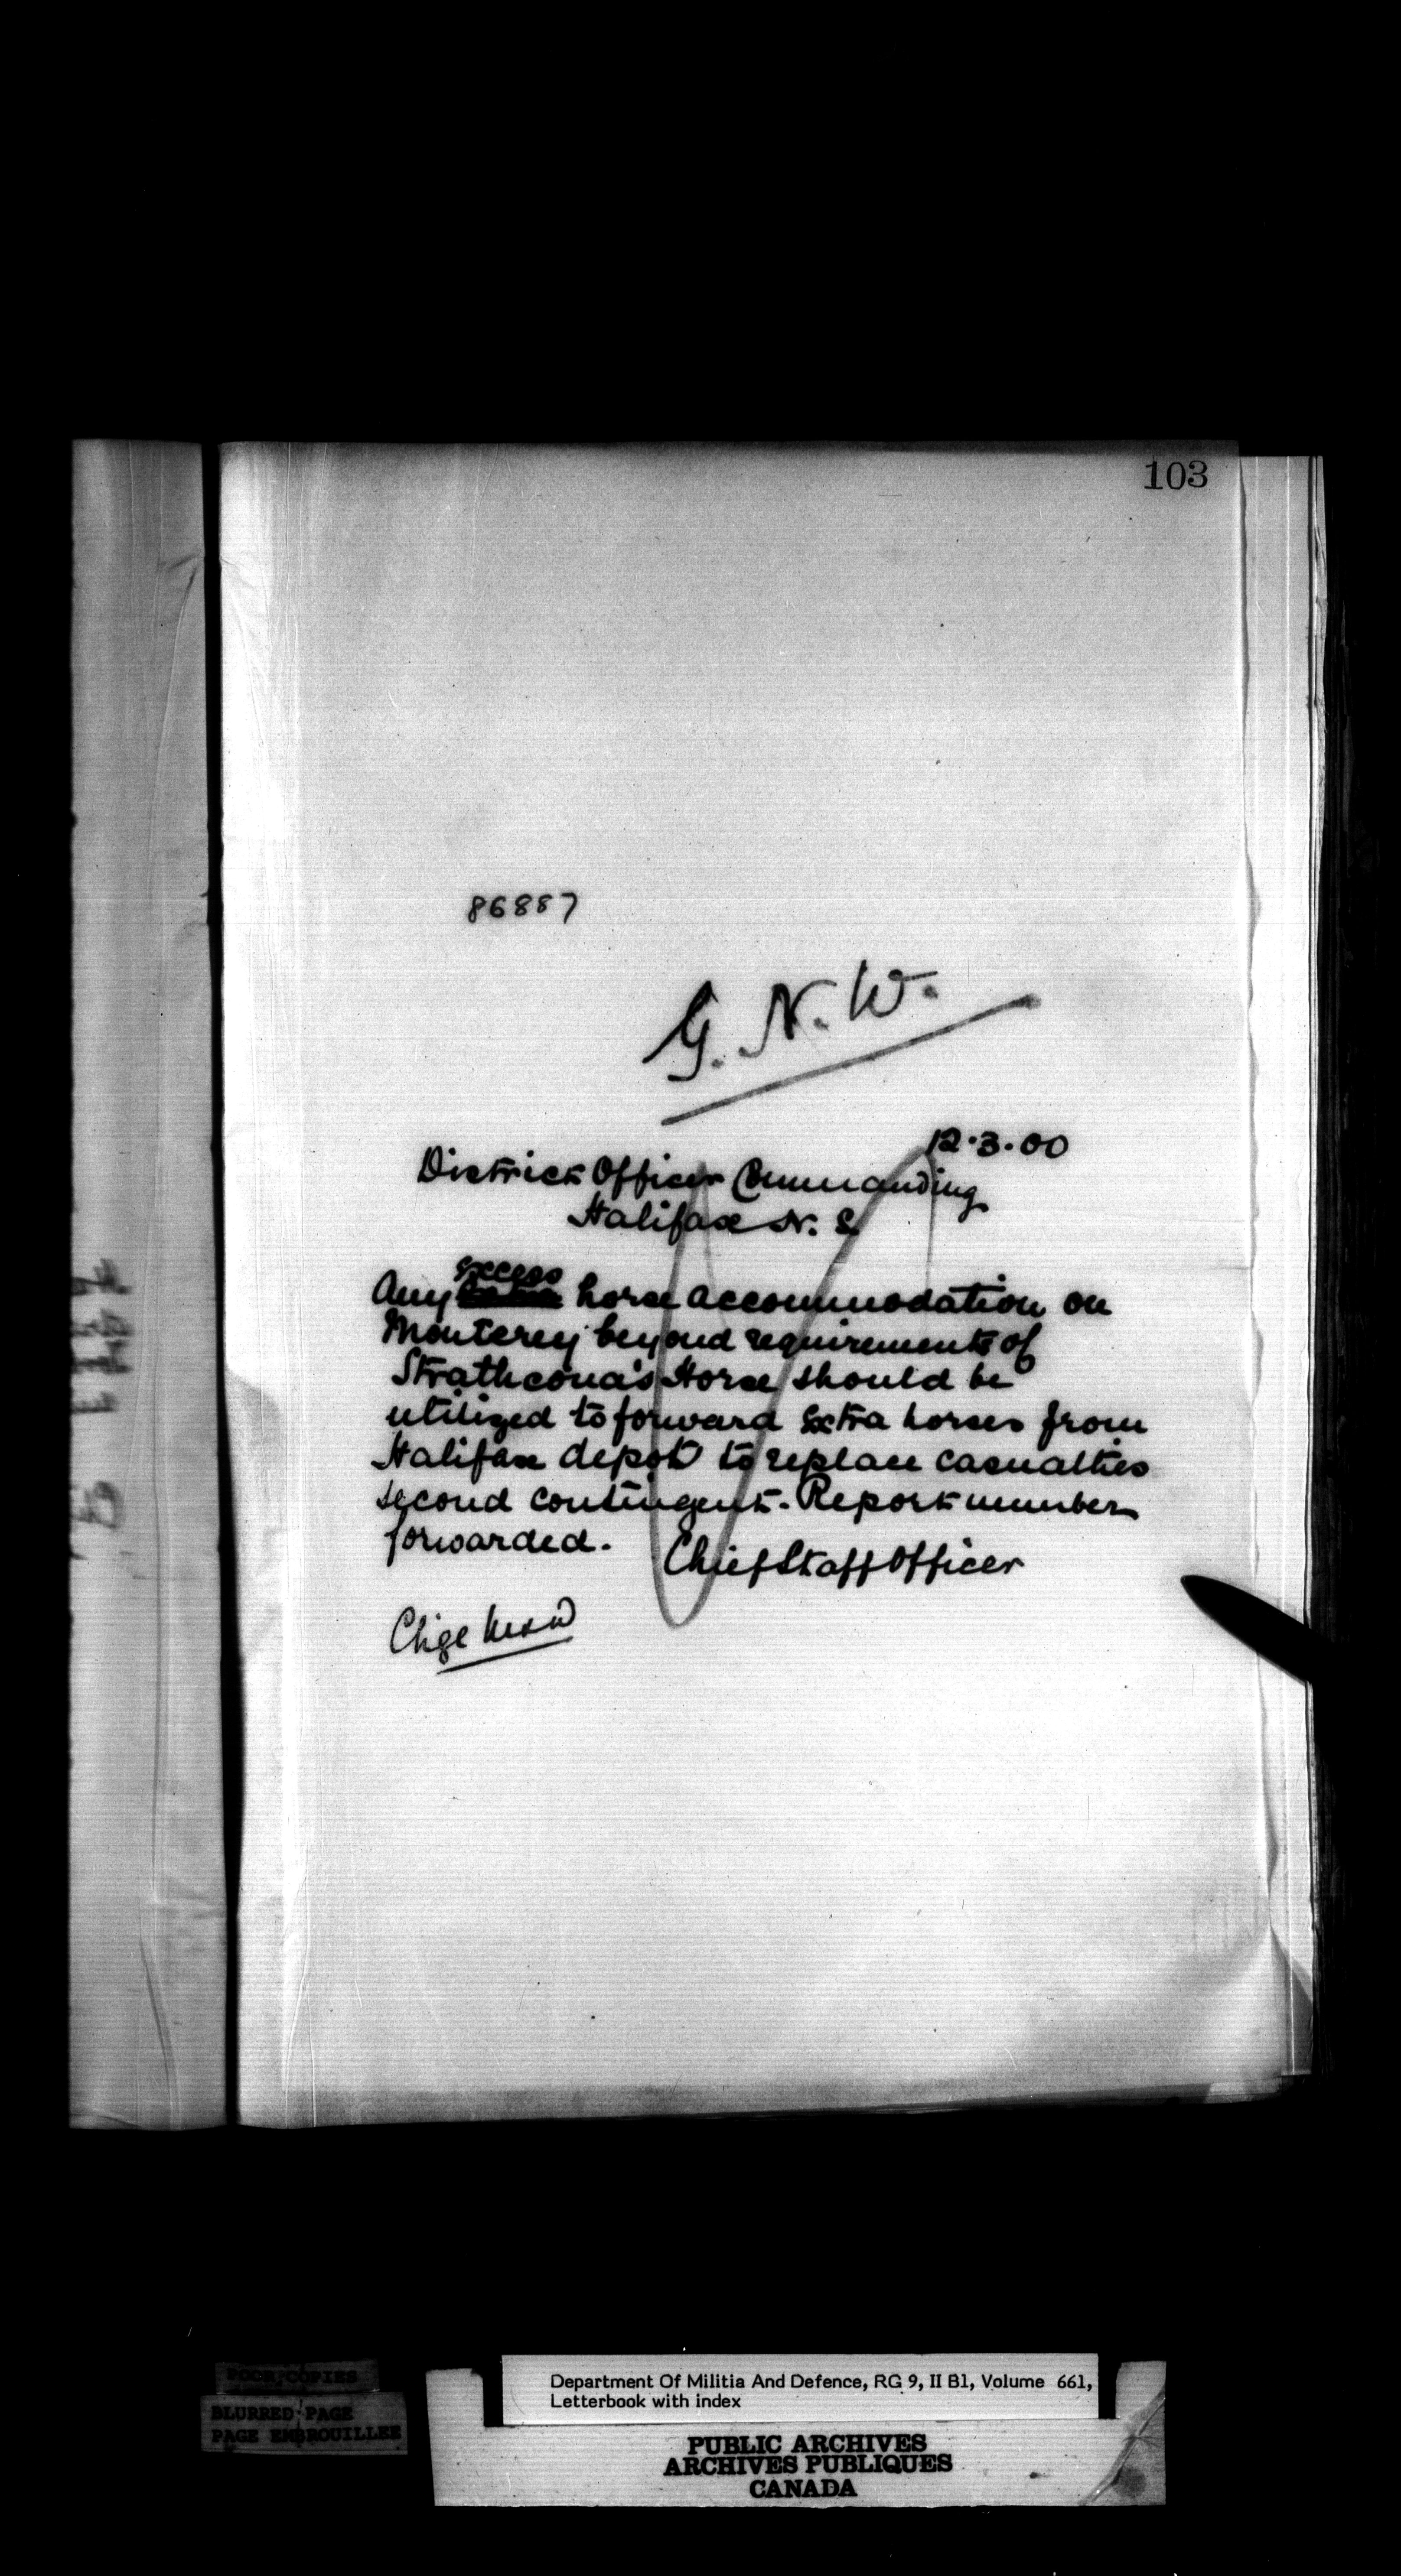 103
86887
G. N. W.
12.3.00
District Officer Commanding
Halifax N. S.
excess
Any horse accommodation on
Monterey beyond requirements of
Strathcona's Horse should be
utilized to forward extra horses from
Halifax depot to replace casualties
second contingent. Report number
forwarded.
Chief Staff Officer
Chge
POOR COPIES
BLURRED PAGE
PAGE EMBROUILLEE
Department Of Militia And Defence, RG 9, II B1, Volume 661,
Letterbook with index
PUBLIC ARCHIVES
ARCHIVES PUBLIQUES
CANADA